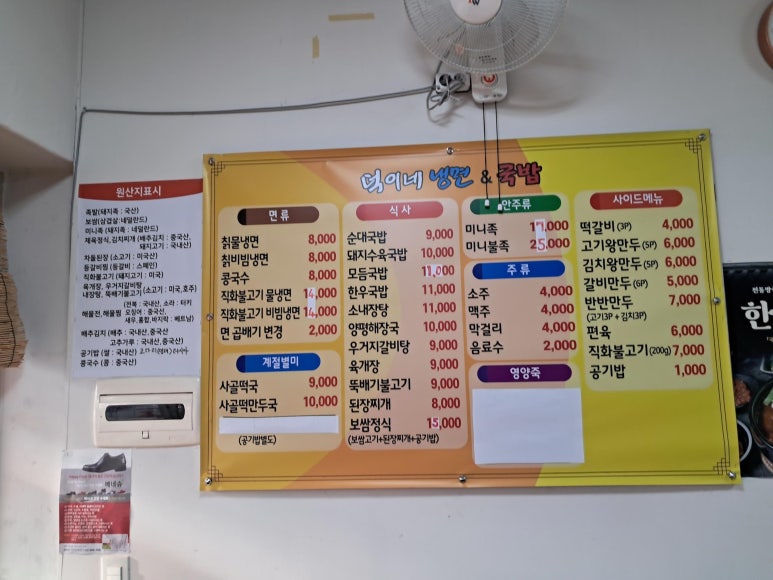 덕이네 냉면 & 국밥
면 류
칡물냉면 8,000
칡비빔냉면 8,000
콩국수 8,000
직화불고기 물냉면 14,000
직화불고기 비빔냉면 14,000
면 곱배기 변경 2,000
계절별미
사골떡국 9,000
사골떡만두국 10,000
(공기밥별도)
식 사
순대국밥 9,000
돼지수육국밥 10,000
모듬국밥 11,000
한우국밥 11,000
소내장탕 11,000
양평해장국 10,000
우거지갈비탕 9,000
육개장 9,000
뚝배기불고기 9,000
된장찌개 8,000
보쌈정식 15,000
(보쌈고기+된장찌개+공기밥)
안주류
미니족
미니불족
주 류
소주 4,000
맥주 4,000
막걸리 4,000
음료수 2,000
영양죽
사이드메뉴
떡갈비 (3P) 4,000
고기왕만두 (5P) 6,000
김치왕만두 (5P) 6,000
갈비만두 (6P) 5,000
반반만두 7,000
(고기3P + 김치3P)
편육 6,000
직화불고기 (200g) 7,000
공기밥 1,000
원산지표시
족발(돼지족 : 국산)
보쌈(삼겹살:네덜란드)
미니족 (돼지족 : 네덜란드)
제육정식,김치찌개 (배추김치 : 중국산,
돼지고기 : 국내산)
차돌된장 (소고기 : 미국산)
등갈비찜 (등갈비 : 스페인)
직화불고기 (돼지고기 : 미국)
육개장, 우거지갈비탕
내장탕, 뚝배기불고기 (소고기 : 미국,호주)
(전복 : 국내산, 소라 : 터키
해물전, 해물찜 오징어 : 중국산,
새우,홍합,바지락 : 베트남)
배추김치 (배추 : 국내산,중국산
고추가루 : 국내산,중국산)
공기밥 (쌀 : 국내산)
콩국수 (콩 : 중국산)